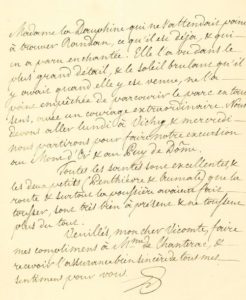 Madame la Dauphine qui ne s'attendait point
à trouver Randan, ce qu'il est déjà, & qui
en a paru enchantée. Elle l'a vu dans le
plus grand détail, & le soleil brulant qu'il
y avait quand elle y est venue, ne l'a
point empêchée de parcourir le parc en tous
sens, avec un courage extraordinaire. Nous
devons aller lundi à Vichy & mercredi
nous partirons pour faire notre excursion
au Mont d'Or & au Puy de Dôme.
Toutes les santés sont excellentes, &
les deux petits (Penthièvre & Aumale) que la
route & surtout la poussière avaient fait
tousser, sont très bien à présent & ne toussent
plus du tout.
Veuillez, mon cher Vicomte, faire
mes compliments à Mme de Chantrac, &
recevoir l'assurance bien sincère de tous mes
sentiments pour vous.